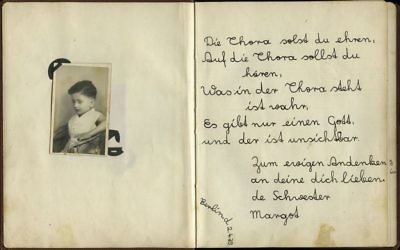 Die Thora solst du ehren,
Auf die Thora sollst du
hören,
Was in der Thora steht
ist wahr,
Es gibt nur einen Gott,
und der ist unsichtbar.
Zum ewigen Andenken
an deine dich lieben-
de Schwester
Margot
Berlin d.